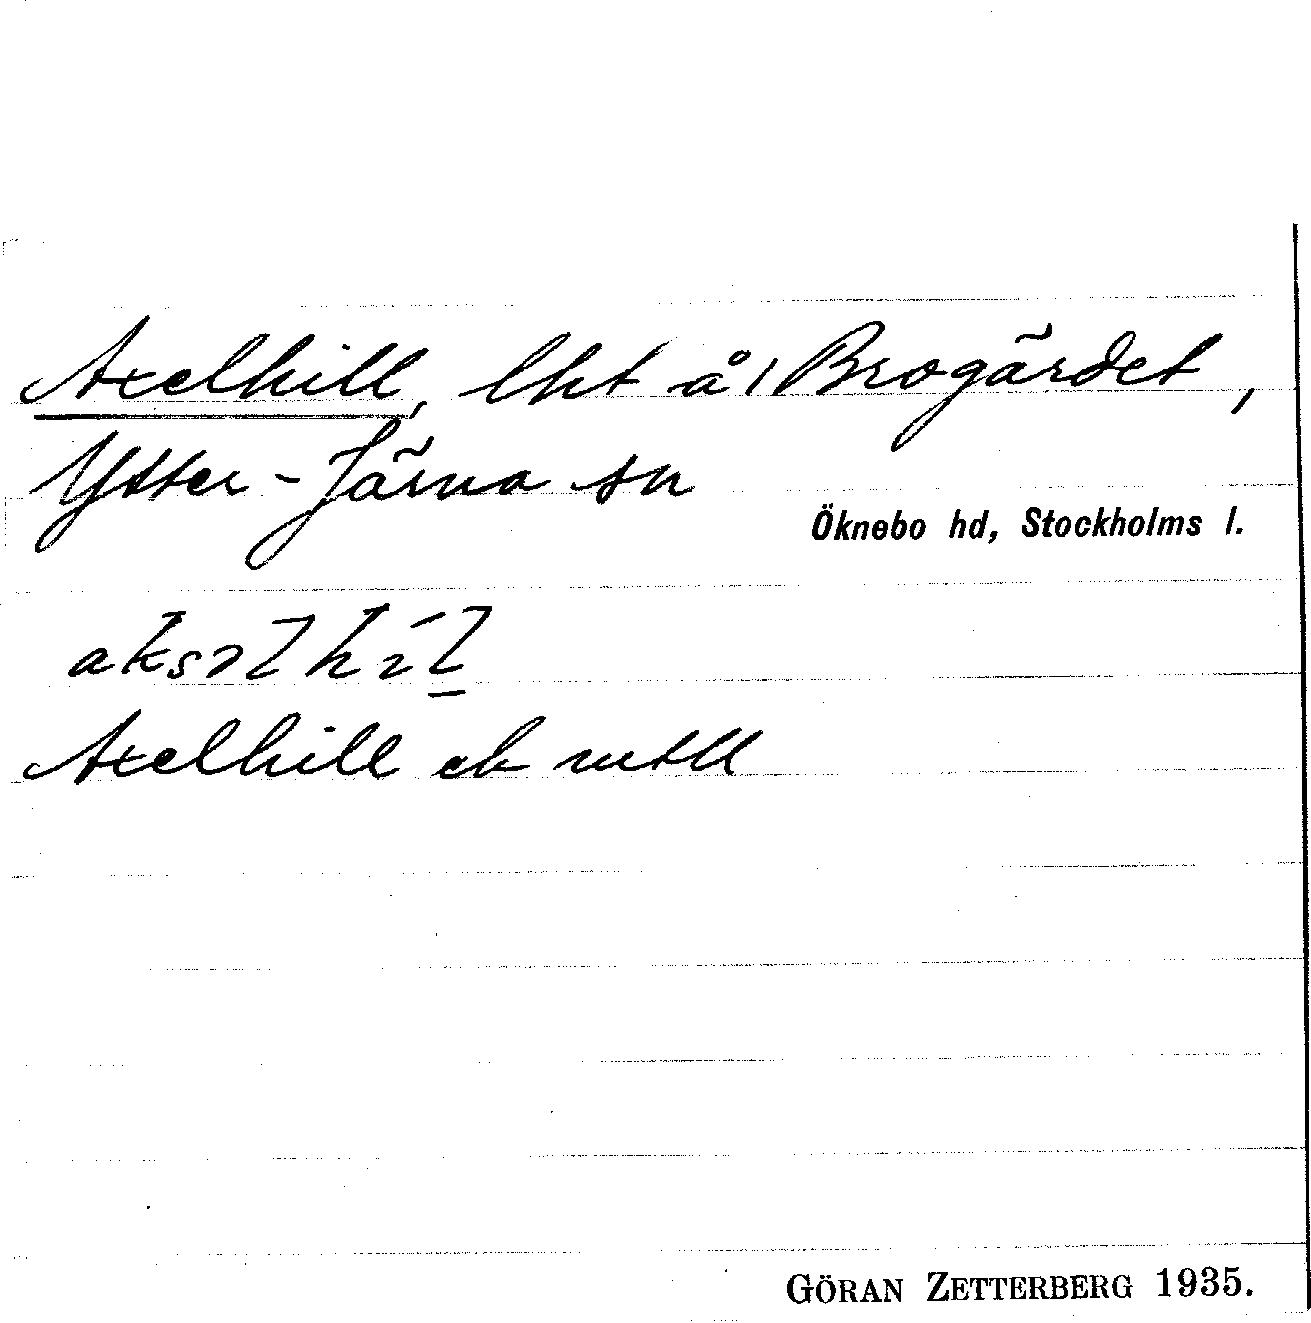 Axelhill, lht å Brogärdet,
Ytter-Järna sn
Öknebo hd, Stockholms l.
aksəl híl
Axelhill ek mtll
GÖRAN ZETTERBERG 1935.